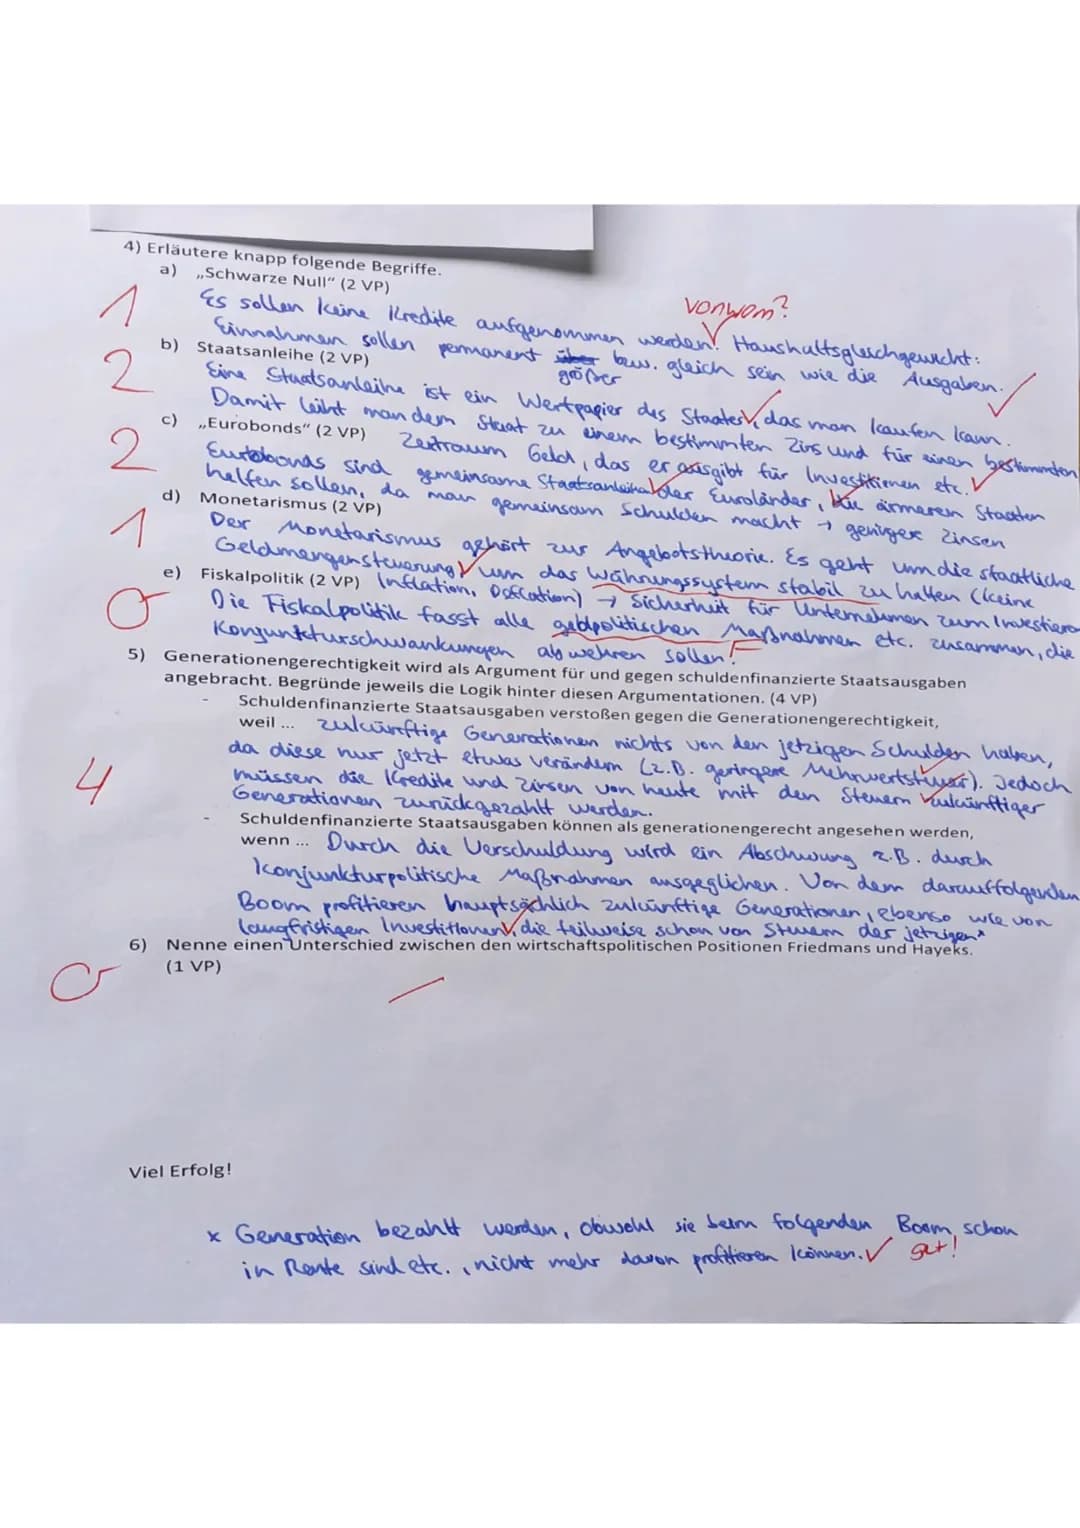 4) Erläutere knapp folgende Begriffe.
a) „Schwarze Null" (2 VP)
vonwom?
1
Es sollen keine Kredite aufgenommen werden! Haushaltsgleichgewicht:
Einnahmen sollen permanent größer bzw. gleich sein wie die Ausgaben.
b) Staatsanleihe (2 VP)
2
Eine Staatsanleihe ist ein Wertpapier des Staates, das man kaufen kann.
Damit leiht man dem Staat zu einem bestimmten Zins und für einen bestimmten
Zeitraum Geld, das er ausgibt für Investitionen etc.
c) „Eurobonds" (2 VP)
2
Eurobonds sind gemeinsame Staatsanleihen der Euroländer, die ärmeren Staaten
helfen sollen, da man gemeinsam Schulden macht → geringer Zinsen
d) Monetarismus (2 VP)
1
Der Monetarismus gehört zur Angebotstheorie. Es geht um die staatliche
Geldmengensteuerung, um das Währungssystem stabil zu halten (keine
Inflation, Deflation) → Sicherheit für Unternehmen zum Investieren
e) Fiskalpolitik (2 VP)
0
Die Fiskalpolitik fasst alle geldpolitischen Maßnahmen etc. zusammen, die
Konjunkturschwankungen abwehren sollen. F
5) Generationengerechtigkeit wird als Argument für und gegen schuldenfinanzierte Staatsausgaben
angebracht. Begründe jeweils die Logik hinter diesen Argumentationen. (4 VP)
- Schuldenfinanzierte Staatsausgaben verstoßen gegen die Generationengerechtigkeit,
weil ... zukünftige Generationen nichts von den jetzigen Schulden haben,
da diese nur jetzt etwas verändern (z.B. geringere Mehrwertsteuer). Jedoch
4
müssen die Kredite und Zinsen von heute mit den Steuern zukünftiger
Generationen zurückgezahlt werden.
- Schuldenfinanzierte Staatsausgaben können als generationengerecht angesehen werden,
wenn ... Durch die Verschuldung wird ein Abschwung z.B. durch
konjunkturpolitische Maßnahmen ausgeglichen. Von dem darauffolgenden
Boom profitieren hauptsächlich zukünftige Generationen, ebenso wie von
langfristigen Investitionen, die teilweise schon von Steuern der jetzigen x
6) Nenne einen Unterschied zwischen den wirtschaftspolitischen Positionen Friedmans und Hayeks.
(1 VP)
0
Viel Erfolg!
x Generation bezahlt werden, obwohl sie beim folgenden Boom, schon
in Rente sind etc., nicht mehr davon profitieren können. gut!